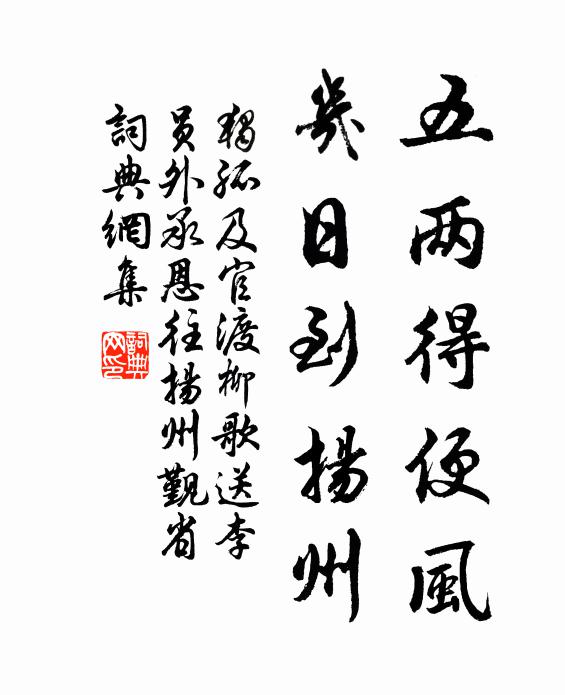 五两得便風
幾日到揚州
獨孤及官渡柳歌送李
員外承恩往揚州覲省
詞典網集
詞典網印